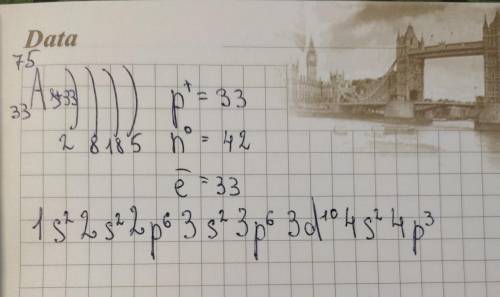 Data
⁷⁵₃₃As +33 ) ) ) )
2 8 18 5
p⁺ = 33
n⁰ = 42
e⁻ = 33
1s²2s²2p⁶3s²3p⁶3d¹⁰4s²4p³